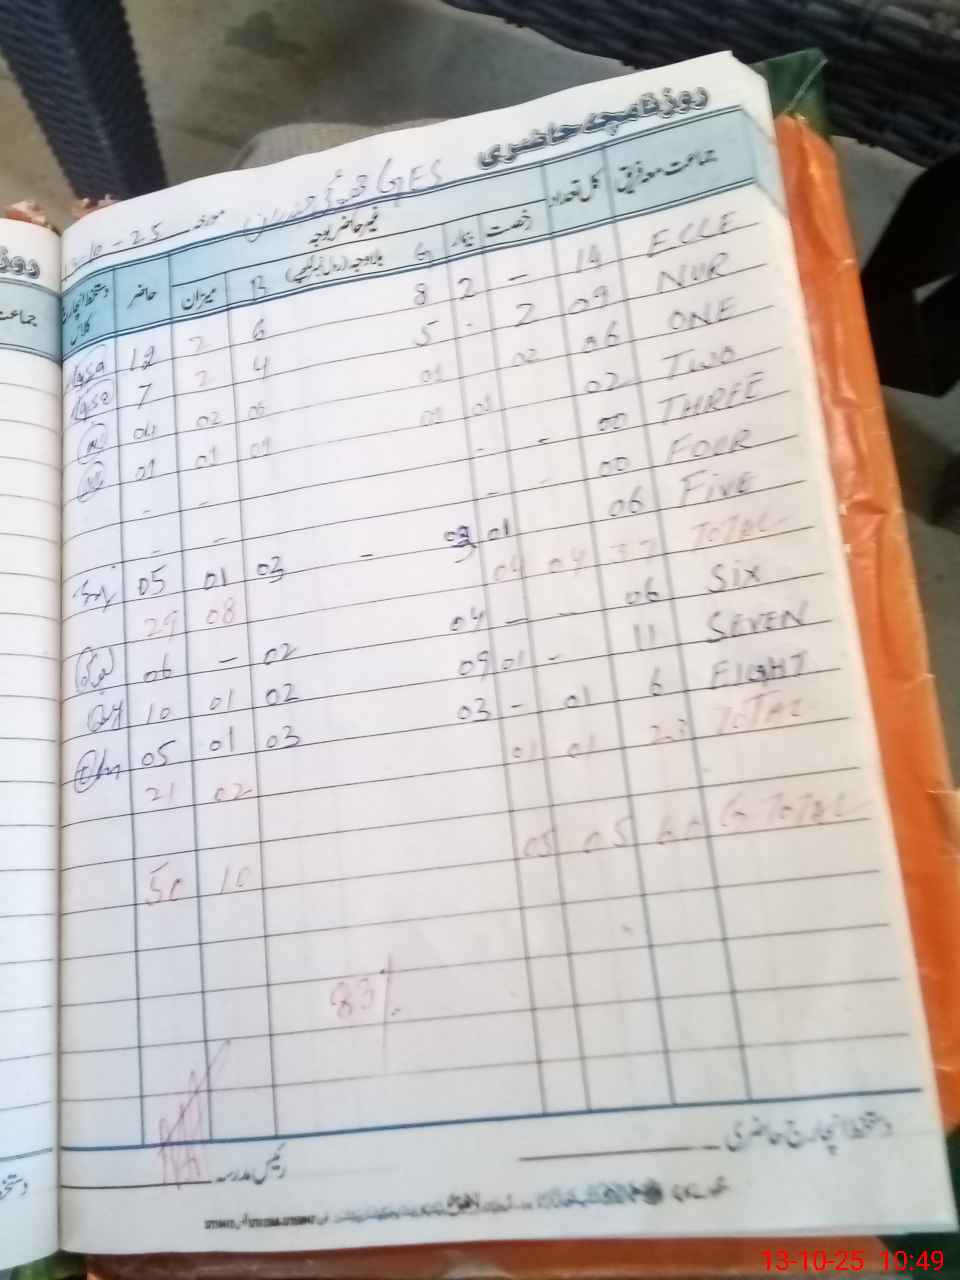 روزنامچہ حاضری
GES
13-10-25 مورخہ
جماعت معہ فریق کل تعداد رخصت بیمار غیر حاضر بوجہ میزان حاضر دستخط انچارج کلاس
G بلاوجہ (رول نمبر لکھیے) B
ECCE 14 - 2 8 6 2 12
NUR 09 2 - 5 4 2 7
ONE 06 02 01 05 02 04
TWO 02 01 01 01 01 01
THREE 00 - - - -
FOUR 00 - - - -
FIVE 06 01 03 - 03 01 05
TOTAL 37 04 04 08 29
SIX 06 - - 04 02 - 06
SEVEN 11 - 01 09 02 01 10
EIGHT 6 01 - 03 03 01 05
TOTAL 23 01 01 02 21
G.TOTAL 60 05 05 10 50
83%
دستخط انچارج حاضری
رئیس مدرسہ
روز
جماعت
دستخط
13-10-25 10:49